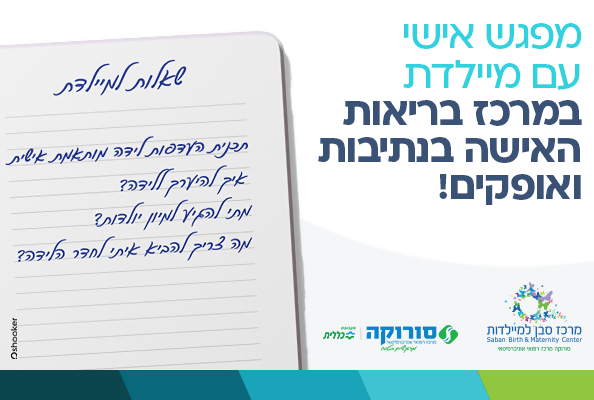 מפגש אישי
עם מיילדת
במרכז בריאות
האישה בנתיבות
ואופקים!
שאלות למיילדת
תכנית העדפות לידה מותאמת אישית
איך להיערך ללידה?
מתי להגיע למיון יולדות?
מה צריך להביא איתי לחדר הלידה?
shooker
מרכז סבן למיילדות
Saban Birth & Maternity Center
סורוקה מרכז רפואי אוניברסיטאי
סורוקה
מרכז רפואי אוניברסיטאי
כללית